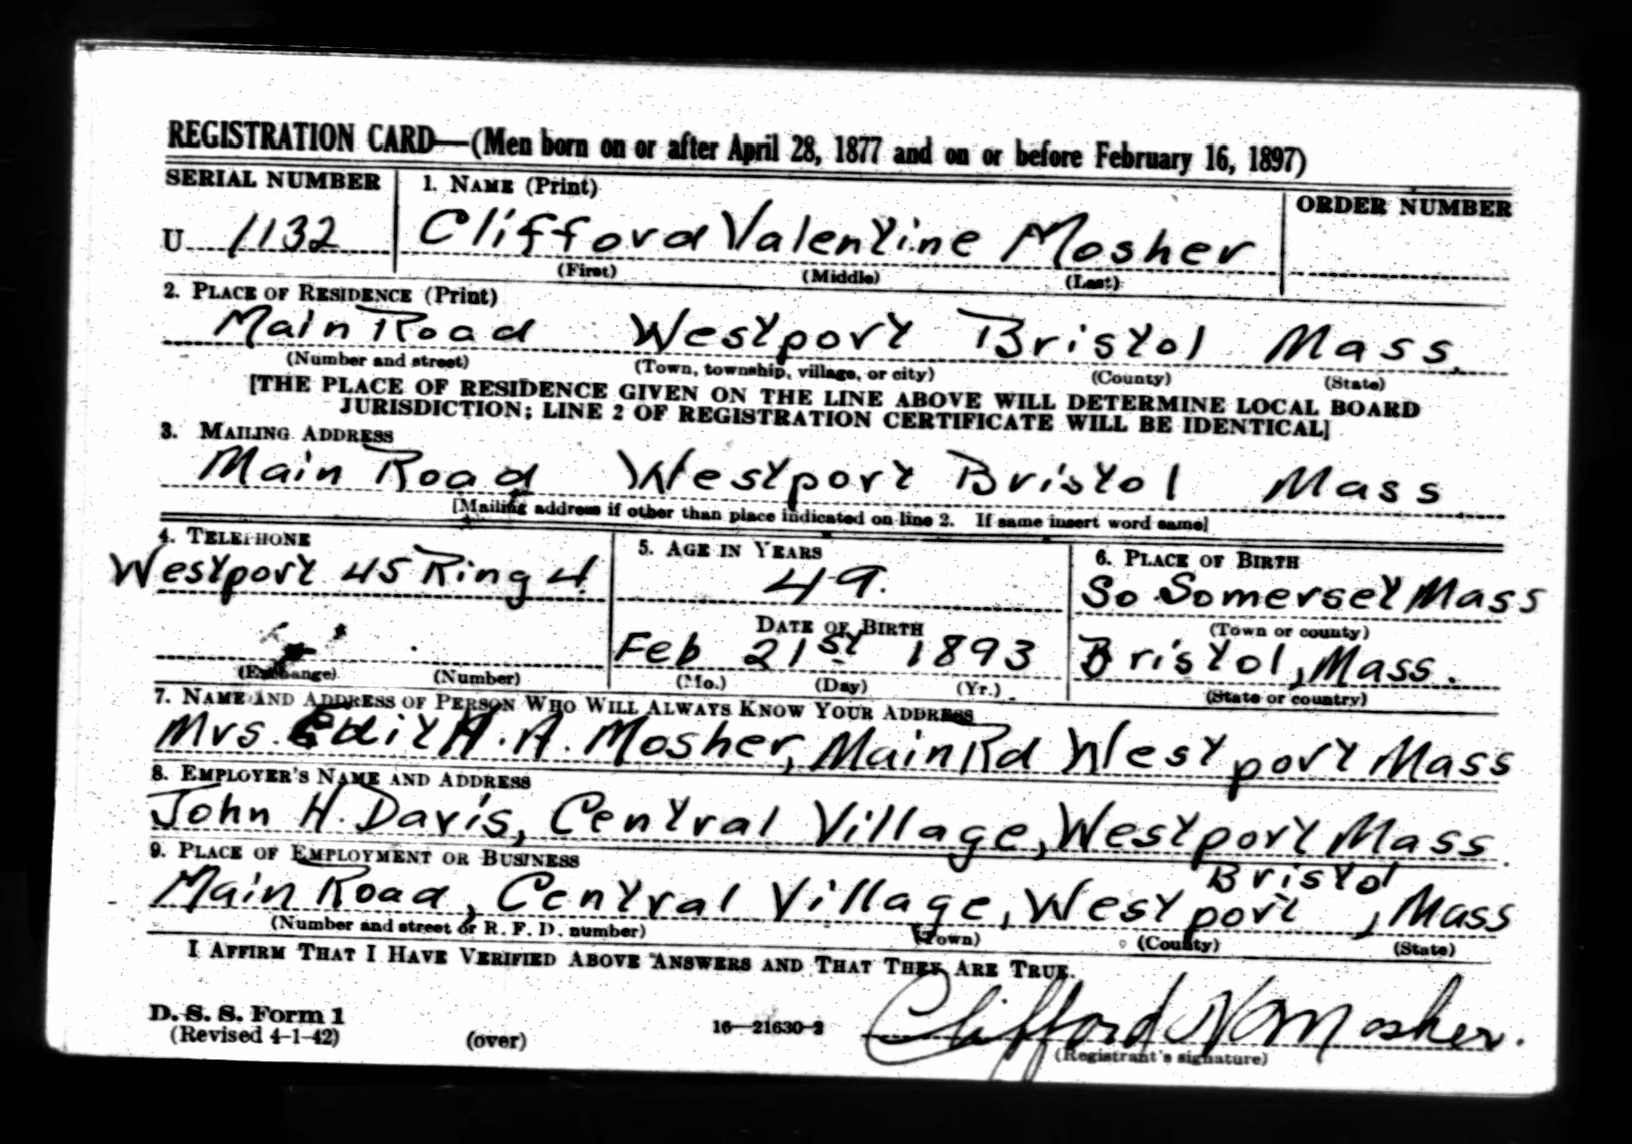 REGISTRATION CARD—(Men born on or after April 28, 1877 and on or before February 16, 1897)
SERIAL NUMBER 1. NAME (Print) ORDER NUMBER
U 1132 Clifford Valentine Mosher
(First) (Middle) (Last)
2. PLACE OF RESIDENCE (Print)
Main Road Westport Bristol Mass.
(Number and street) (Town, township, village, or city) (County) (State)
[THE PLACE OF RESIDENCE GIVEN ON THE LINE ABOVE WILL DETERMINE LOCAL BOARD
JURISDICTION; LINE 2 OF REGISTRATION CERTIFICATE WILL BE IDENTICAL]
3. MAILING ADDRESS
Main Road Westport Bristol Mass
[Mailing address if other than place indicated on line 2. If same insert word same]
4. TELEPHONE 5. AGE IN YEARS 6. PLACE OF BIRTH
Westport 45 Ring 4. 49. So Somerset Mass
DATE OF BIRTH (Town or county)
Feb 21st 1893 Bristol, Mass.
(Exchange) (Number) (Mo.) (Day) (Yr.) (State or country)
7. NAME AND ADDRESS OF PERSON WHO WILL ALWAYS KNOW YOUR ADDRESS
Mrs. Edith A. Mosher, Main Rd Westport Mass
8. EMPLOYER'S NAME AND ADDRESS
John H. Davis, Central Village, Westport Mass.
9. PLACE OF EMPLOYMENT OR BUSINESS
Main Road, Central Village, Westport Bristol, Mass
(Number and street or R. F. D. number) (Town) (County) (State)
I AFFIRM THAT I HAVE VERIFIED ABOVE ANSWERS AND THAT THEY ARE TRUE.
D. S. S. Form 1
(Revised 4-1-42) (over) 16—21630-2 Clifford V Mosher.
(Registrant's signature)